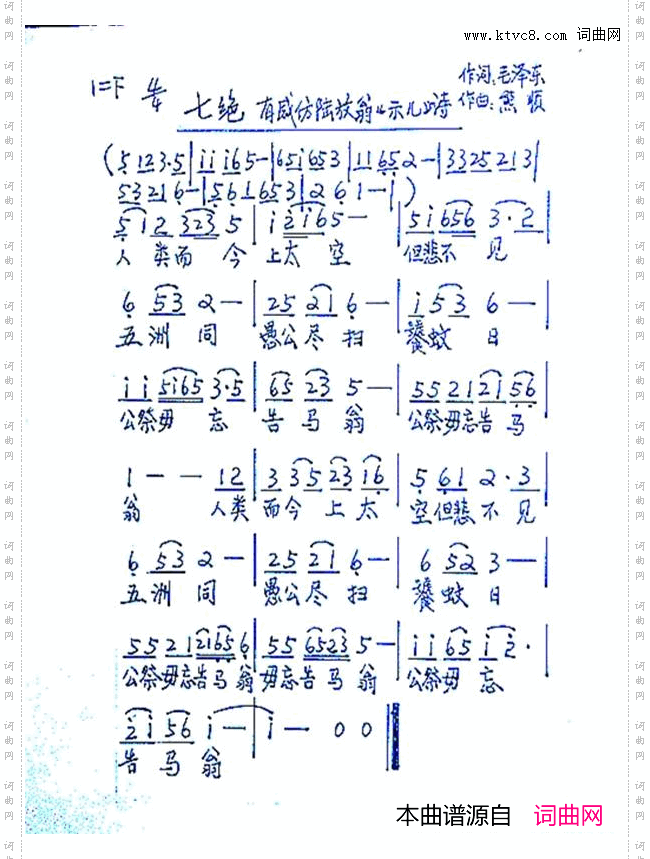 www.ktvc8.com 词曲网
1=F 4/4
七绝 有感仿陆放翁《示儿》诗
作词:毛泽东
作曲:熊顺
(5 1 2 3·5|i i i 6 5-|6 5 i 6 5 3|1 1 6 5 2-|3 3 2 5 2 1 3|
5 3 2 1 6-|5 6 1 6 5 3|2 6 1-|)
5 1 2 3 2 3 5|i 2 i 6 5-|5 i 6 5 6 3·2
人类而今 上太空 但悲不见
6 5 3 2-|2 5 2 1 6-|i 5 3 6-|
五洲同 愚公尽扫饕蚊日
i i 5 i 6 5 3·5|6 5 2 3 5-|5 5 2 1 2 1 5 6|
公祭毋忘 告马翁 公祭毋忘告马
1--1 2|3 3 5 2 3 1 6|5 6 1 2·3|
翁 人类 而今上太 空但悲不见
6 5 3 2-|2 5 2 1 6-|6 5 2 3-|
五洲同 愚公尽扫 饕蚊日
5 5 2 1 2 1 6 5 6|5 5 6 5 2 3 5-|i i 6 5 i 2·
公祭毋忘告马翁 毋忘告马翁 公祭毋忘
2 i 5 6 i-|i-0 0
告马翁
本曲谱源自 词曲网